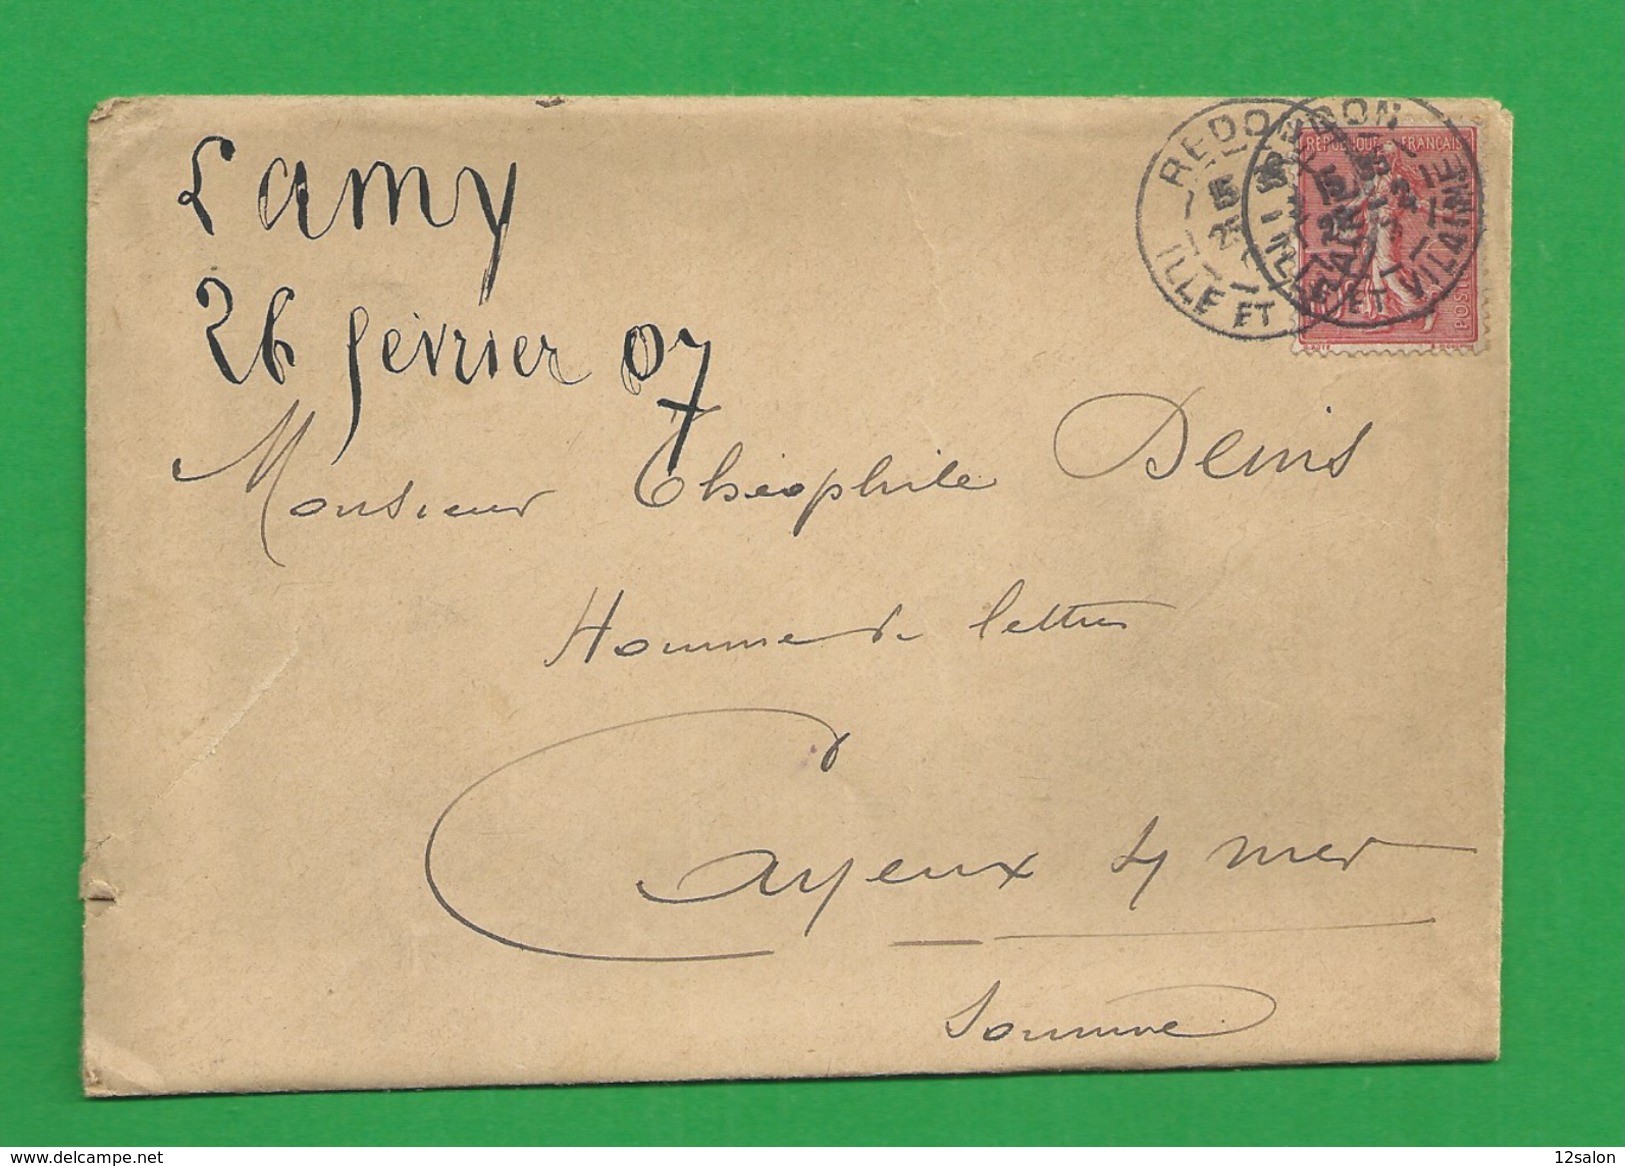 Lamy
26 février 07
REDON
15
25
ILLE ET
REDON
15
25
ILLE ET VILAINE
REPUBLIQUE FRANÇAISE
POSTES
Monsieur Théophile Denis
Homme de lettres
Cayeux s/ mer
Somme
www.delcampe.net
12salon